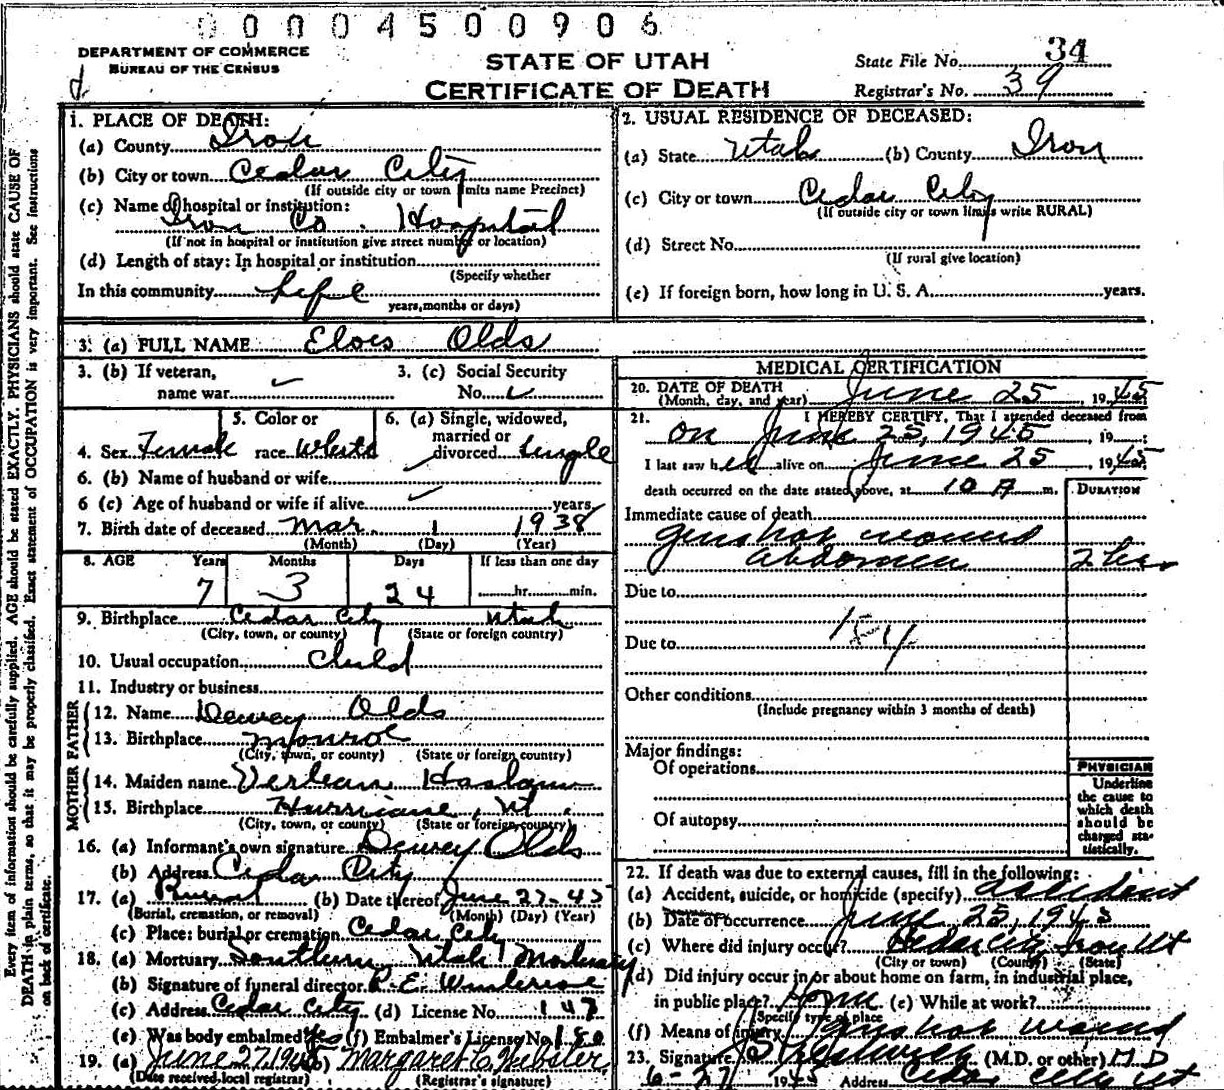 00004500906
DEPARTMENT OF COMMERCE
BUREAU OF THE CENSUS
STATE OF UTAH
CERTIFICATE OF DEATH
State File No. 34
Registrar's No. 39
Every item of information should be carefully supplied. AGE should be stated EXACTLY. PHYSICIANS should state CAUSE OF
DEATH in plain terms, so that it may be properly classified. Exact statement of OCCUPATION is very important. See instructions
on back of certificate.
1. PLACE OF DEATH:
(a) County Iron
(b) City or town Cedar City
(If outside city or town limits name Precinct)
(c) Name of hospital or institution:
Iron Co. Hospital
(If not in hospital or institution give street number or location)
(d) Length of stay: In hospital or institution
(Specify whether
In this community life
years, months or days)
2. USUAL RESIDENCE OF DECEASED:
(a) State Utah (b) County Iron
(c) City or town Cedar City
(If outside city or town limits write RURAL)
(d) Street No.
(If rural give location)
(e) If foreign born, how long in U. S. A. years.
3. (a) FULL NAME Elois Olds
3. (b) If veteran, 3. (c) Social Security
name war No.
5. Color or 6. (a) Single, widowed,
married or
4. Sex Female race White divorced Single
6. (b) Name of husband or wife
6 (c) Age of husband or wife if alive years
7. Birth date of deceased Mar. 1 1938
(Month) (Day) (Year)
8. AGE Years Months Days If less than one day
7 3 24 hr. min.
9. Birthplace Cedar City Utah
(City, town, or county) (State or foreign country)
10. Usual occupation Child
11. Industry or business
FATHER
12. Name Dewey Olds
13. Birthplace Monroe
(City, town, or county) (State or foreign country)
MOTHER
14. Maiden name Verlean Haslam
15. Birthplace Hurricane, Ut.
(City, town, or county) (State or foreign country)
16. (a) Informant's own signature Dewey Olds
(b) Address Cedar City
17. (a) Burial (b) Date thereof June 27-45
(Burial, cremation, or removal) (Month) (Day) (Year)
(c) Place: burial or cremation Cedar City
18. (a) Mortuary Southern Utah Mortuary
(b) Signature of funeral director
(c) Address Cedar City (d) License No. 147
(e) Was body embalmed Yes (f) Embalmer's License No. 180
19. (a) June 27 1945 (b) Margaret C. Webster
(Date received local registrar) (Registrar's signature)
MEDICAL CERTIFICATION
20. DATE OF DEATH June 25 1945
(Month, day, and year)
21. I HEREBY CERTIFY, That I attended deceased from
on June 25, 1945, 19
I last saw her alive on June 25 1945
death occurred on the date stated above, at 10 A m.
DURATION
Immediate cause of death
gunshot wound
abdomen 2 hrs
Due to
Due to 184
Other conditions
(Include pregnancy within 3 months of death)
Major findings:
Of operations
Of autopsy
PHYSICIAN
Underline
the cause to
which death
should be
charged sta-
tistically.
22. If death was due to external causes, fill in the following:
(a) Accident, suicide, or homicide (specify) accident
(b) Date of occurrence June 25, 1945
(c) Where did injury occur? Cedar City Iron Ut
(City or town) (County) (State)
(d) Did injury occur in or about home on farm, in industrial place,
in public place? Home (e) While at work?
(Specify type of place
(f) Means of injury gunshot wound
23. Signature (M.D. or other) M D
6-27 1945 Address Cedar City Ut